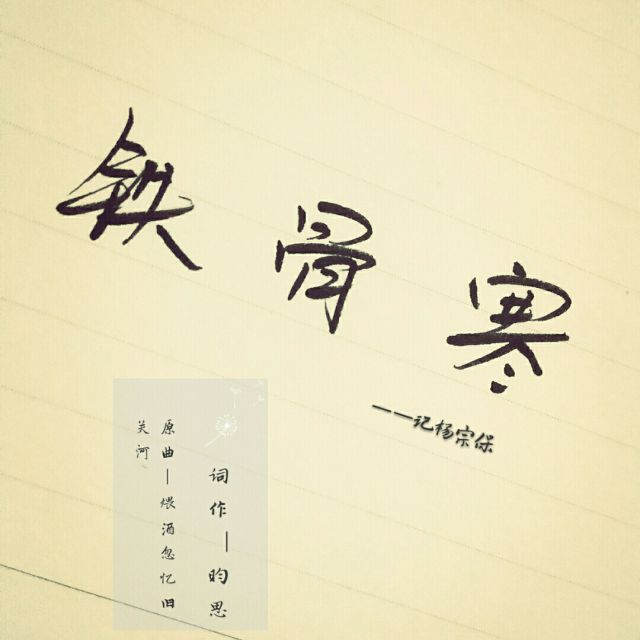 铁骨寒
——记杨宗保
词作—昀思
原曲—煨酒忽忆旧
关河